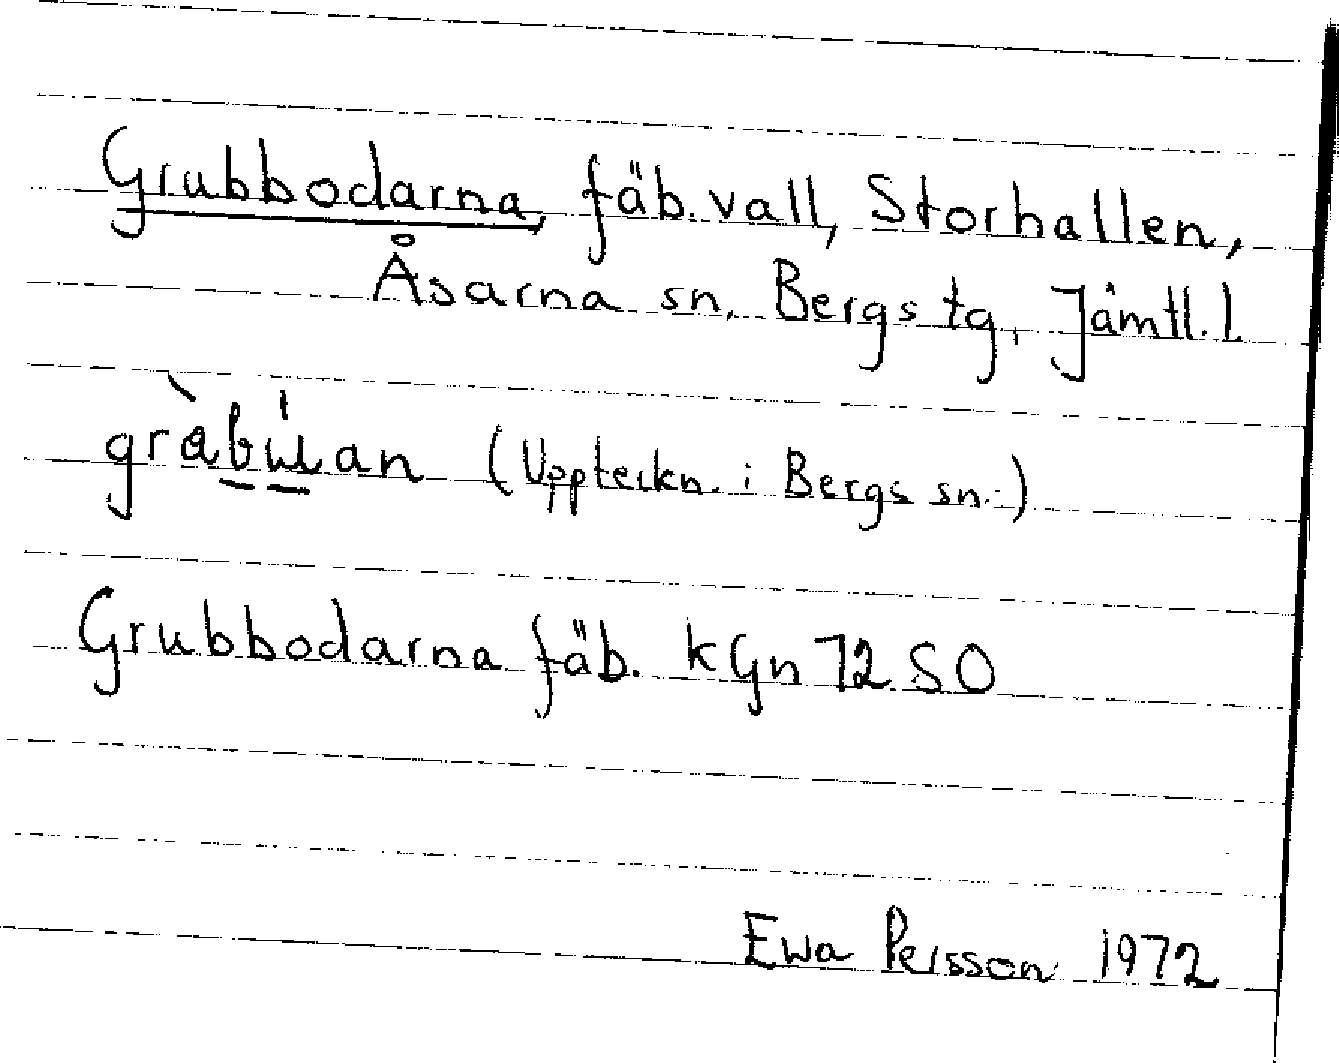 Grubbodarna, fäb.vall, Storhallen,
Åsarna sn, Bergs tg, Jämtl. l.
(Uppteckn. i Bergs sn.)
Grubbodarna fäb. kGn 72 SO
Ewa Persson 1972